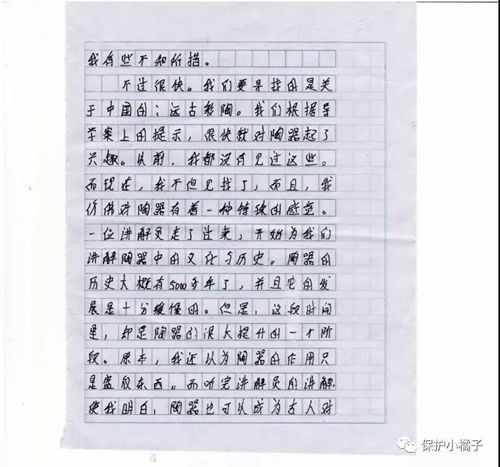 我有些不知所措。
不过很快。我们要寻找的是关
于中国的：远古彩陶。我们根据导
学案上的提示，很快就对陶器起了
兴趣。从前，我都没有见过这些。
而现在，我不但见我了，而且，我
仿佛对陶器有着一种特殊的感觉。
一位讲解员走了过来，开始为我们
讲解陶器中的文化与历史。陶器的
历史大概有5000多年了，并且它的发
展是十分缓慢的。但是，这段时间
里，却是陶器的很大提升的一个阶
段。原本，我还以为陶器的作用只
是盛放东西。而听完讲解员的讲解
使我明白，陶器也可以成为古人对
保护小橘子